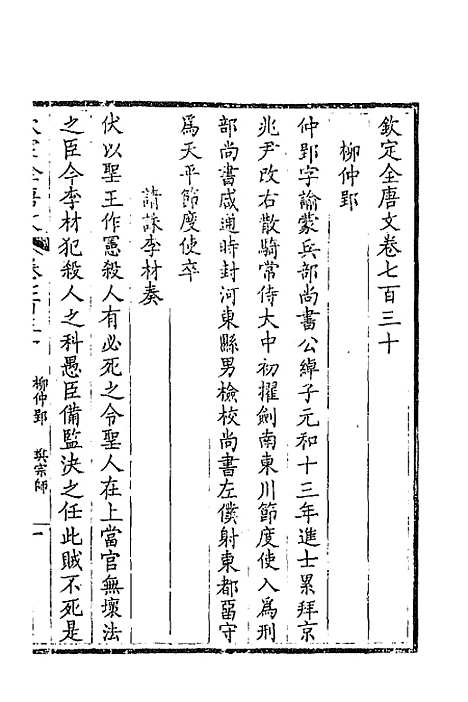 欽定全唐文卷七百三十
柳仲郢
仲郢字諭蒙兵部尚書公綽子元和十三年進士累拜京
兆尹改右散騎常侍大中初擢劍南東川節度使入爲刑
部尚書咸通時封河東縣男檢校尚書左僕射東都畱守
爲天平節度使卒
請誅李材奏
伏以聖王作憲殺人有必死之令聖人在上當官無壞法
之臣今李材犯殺人之科愚臣備監決之任此賊不死是
柳仲郢 樊宗師 一